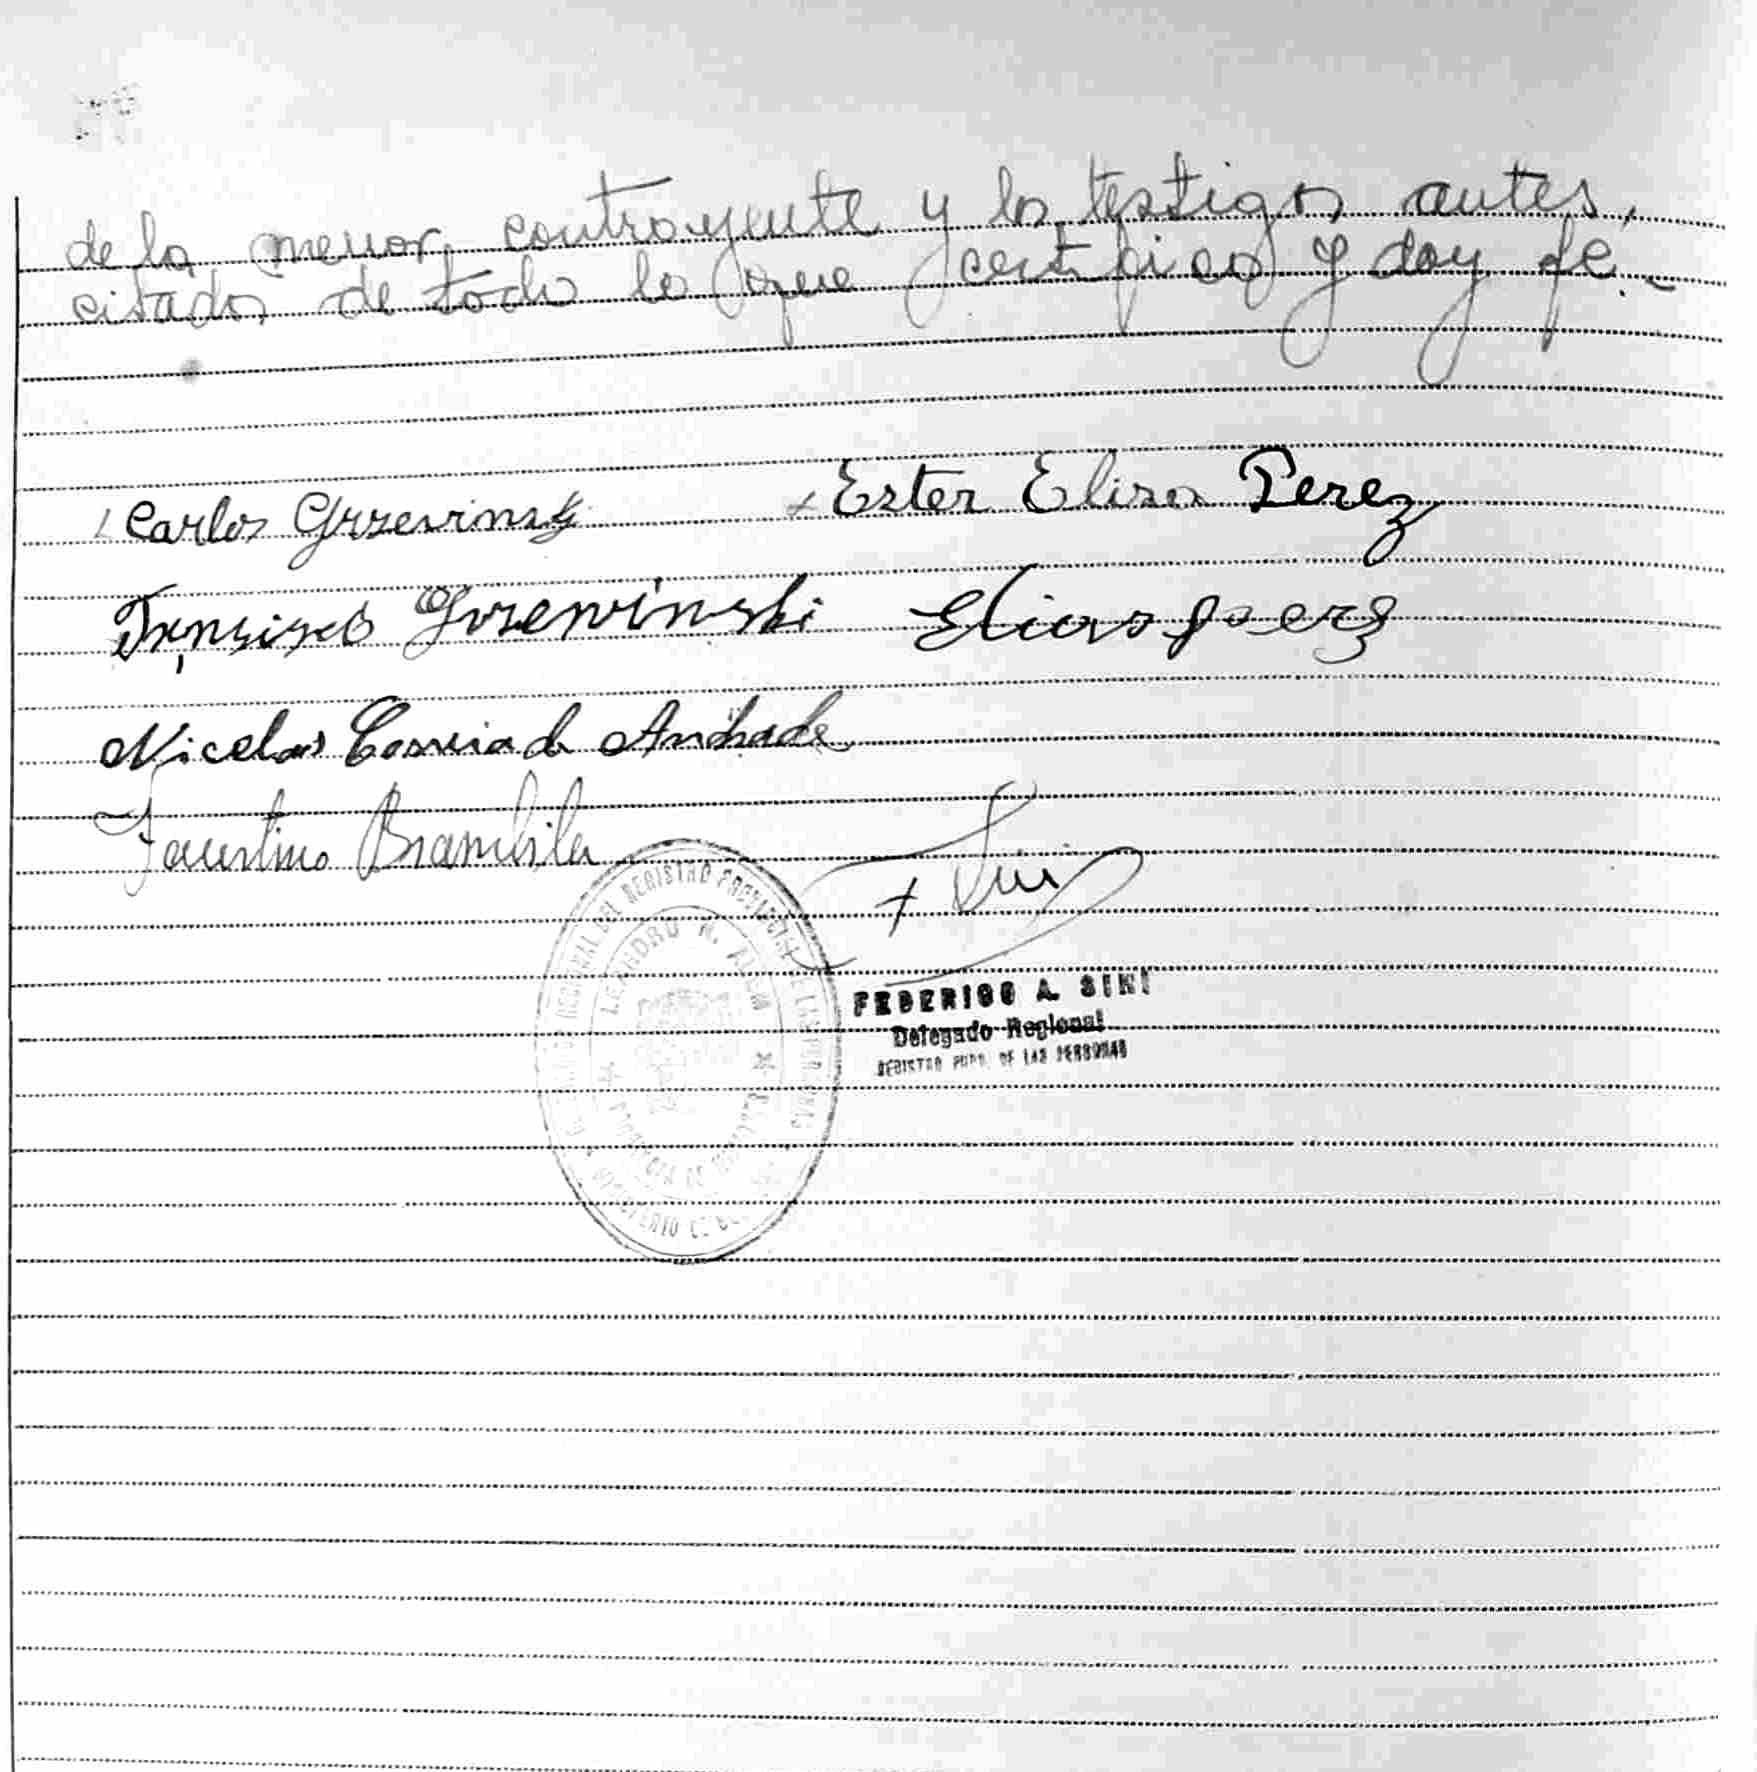 de la menor contrayente y los testigos antes
citados de todo lo que certifico y doy fe.-
Carlos Grzevinsk
x Ester Elisa Perez
Grzewinski
Elias Paerz
Nicolas Correia de Andrade
Faustino Brambila
Sini
REGIONAL DEL REGISTRO PROVINCIAL DE LAS PERSONAS
LEANDRO N. ALEM
FEDERICO A. SINI
Delegado Regional
REGISTRO PROV. DE LAS PERSONAS